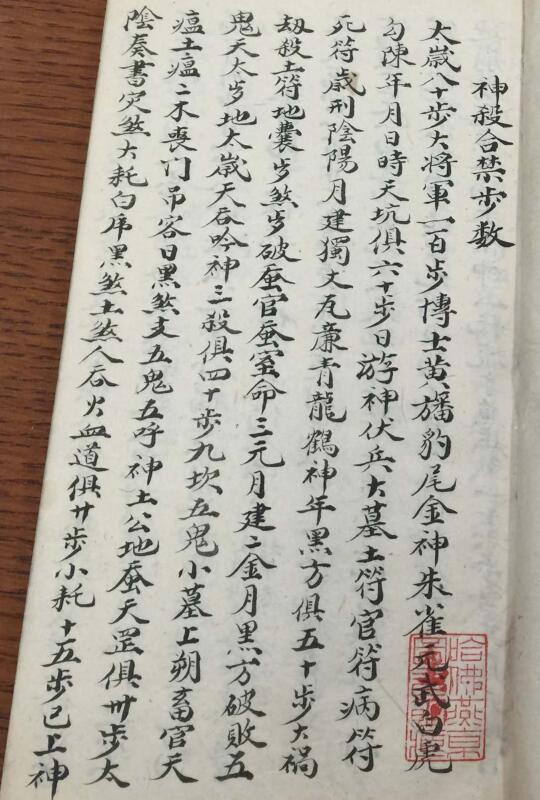 神殺合禁步数
太歲八十步大将軍一百步博士黃旛豹尾金神朱雀元武白虎
勾陳年月日時天坑俱六十步日游神伏兵大墓土符官符病符
死符歲刑陰陽月建獨丈瓦廉青龍鶴神年黑方俱五十步大禍
刼殺土符地囊岁煞岁破蚕官蚕室命三元月建二金月黑方破敗五
鬼天太岁地太歲天吞吟神三殺俱四十步九坎五鬼小墓上朔畜官天
瘟土瘟二木喪门吊客日黑煞支五鬼五呼神土公地蚕天罡俱卅步太
陰奏書定煞大耗白虎黑煞土煞人吞火血道俱廿步小耗十五步已上神
哈佛燕京